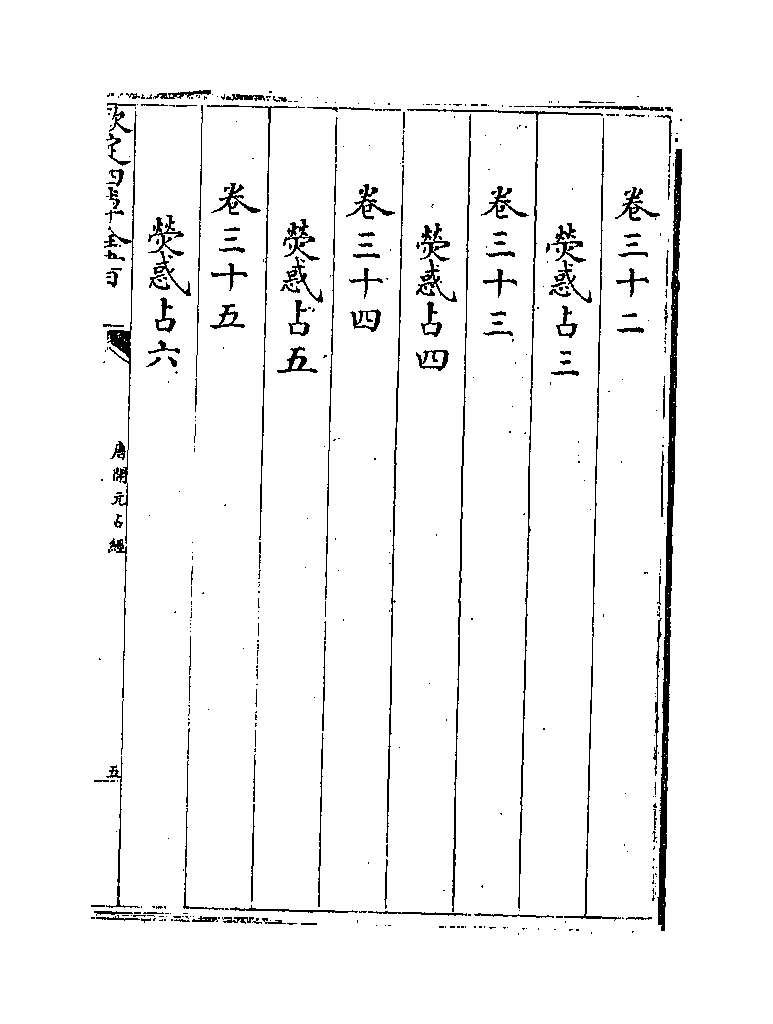 卷三十二
熒惑占三
卷三十三
熒惑占四
卷三十四
熒惑占五
卷三十五
熒惑占六
欽定四庫全書
唐開元占經
五